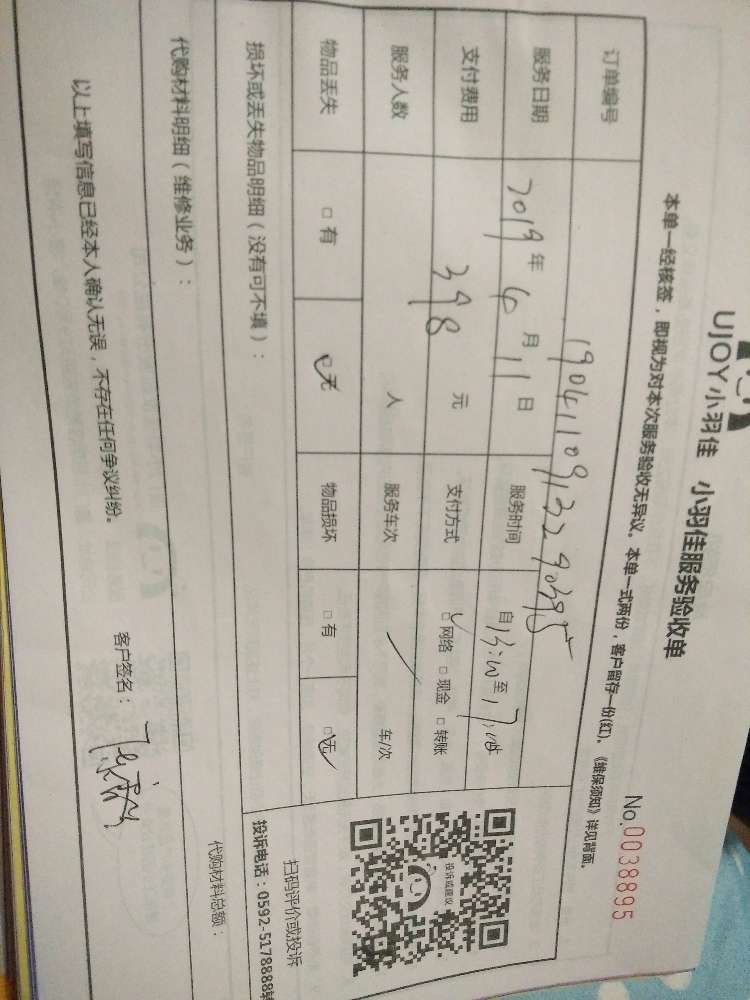 UJOY小羽佳 小羽佳服务验收单
No.0038895
本单一经核签，即视为对本次服务验收无异议。本单一式两份，客户留存一份(红)。《维保须知》详见背面。
订单编号 1904110913290395
服务日期 2019年6月11日 服务时间 自13:00至17:00
支付费用 398元 支付方式 □网络 □现金 □转账
服务人数 人 服务车次 车/次
物品丢失 □有 □无 物品损坏 □有 □无
损坏或丢失物品明细（没有可不填）：
投诉或建议
扫码评价或投诉
投诉电话：0592-5178888转
代购材料明细（维修业务）：
代购材料总额：
以上填写信息已经本人确认无误，不存在任何争议纠纷。
客户签名：